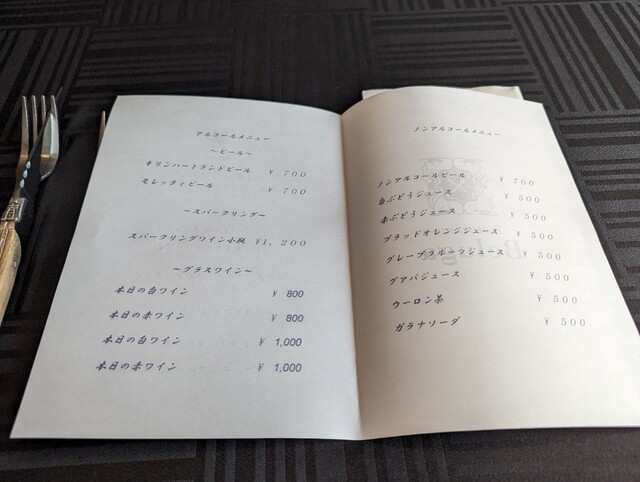 アルコールメニュー
～ビール～
キリンハートランドビール ¥ 700
モレッティビール ¥ 700
～スパークリング～
スパークリングワイン小瓶 ¥1,200
～グラスワイン～
本日の白ワイン ¥ 800
本日の赤ワイン ¥ 800
本日の白ワイン ¥ 1,000
本日の赤ワイン ¥ 1,000
ノンアルコールメニュー
ノンアルコールビール ¥ 700
白ぶどうジュース ¥ 500
赤ぶどうジュース ¥ 500
ブラッドオレンジジュース ¥ 500
グレープフルーツジュース ¥ 500
グアバジュース ¥ 500
ウーロン茶 ¥ 500
ガラナソーダ ¥ 500